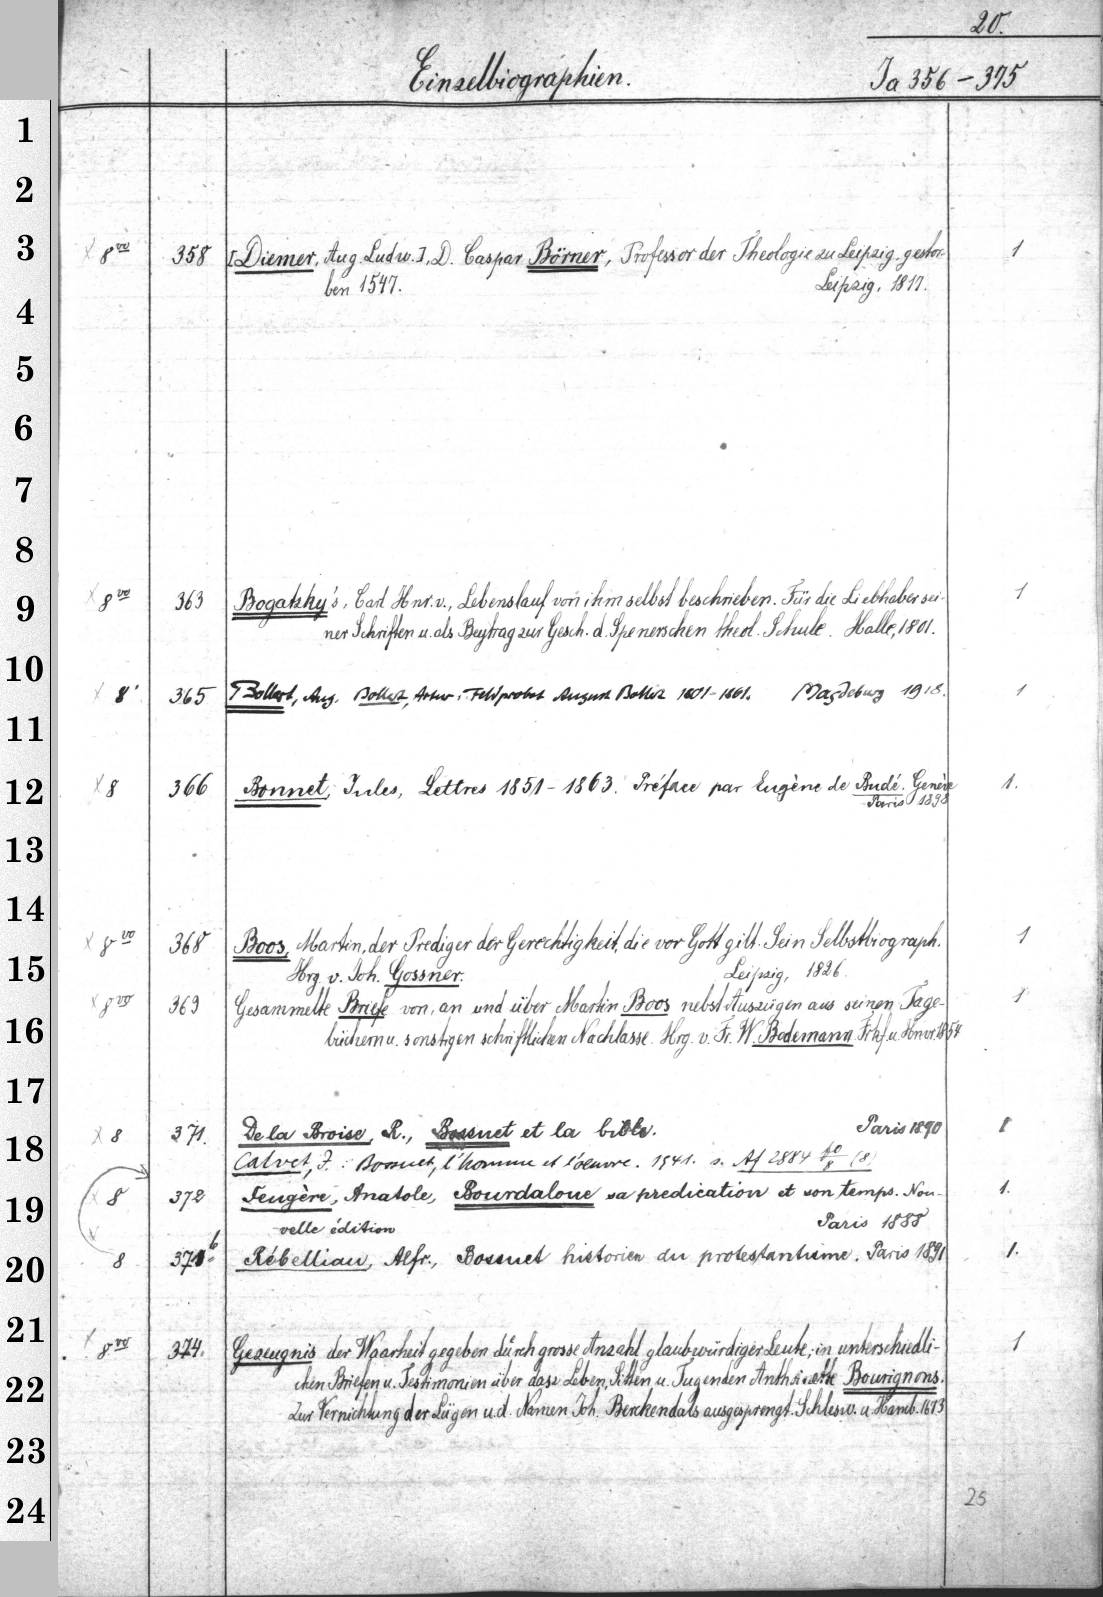 20.
Einzelbiographien. Ia 356-375
1
2
3 × 8vo 358 [Diemer, Aug. Ludw.], D. Caspar Börner, Professor der Theologie zu Leipzig, gestor- 1
ben 1547. Leipzig, 1817.
4
5
6
7
8
9 × 8vo 363 Bogatzky's, Carl Hnr. v., Lebenslauf von ihm selbst beschrieben. Für die Liebhaber sei- 1
ner Schriften u. als Beytrag zur Gesch. d. Spenerschen theol. Schule. Halle, 1801.
10
× 8' 365 Bollert, Aug. Bollert, Artur: Feldprobst August Bollert 1801-1861. Magdeburg 1918. 1
11
12 × 8 366 Bonnet, Jules, Lettres 1851-1863. Préface par Eugène de Budé. Genève 1.
Paris 1898
13
14
× 8vo 368 Boos, Martin, der Prediger der Gerechtigkeit, die vor Gott gilt. Sein Selbstbiograph. 1
15 Hrg. v. Joh. Gossner. Leipzig, 1826.
× 8vo 369 Gesammelte Briefe von, an und über Martin Boos nebst Auszügen aus seinen Tage- 1
16 büchern u. sonstigen schriftlichen Nachlasse. Hrg. v. Fr. W. Bodemann. Frkf. u. Hnvr. 1854
17
× 8 371. De la Broise, R., Bossuet et la bible. Paris 1890 1
18 Calvet, J.: Bossuet, l'homme et l'oeuvre. 1941. s. Af 2884 (8)
19 × 8 372 Feugère, Anatole, Bourdaloue sa predication et son temps. Nou- 1.
velle édition Paris 1888
20 8 371b Rébelliau, Alfr., Bossuet historien du protestantisme. Paris 1891 1.
21
8vo 374. Gezeugnis der Waarheit gegeben durch grosse Anzahl glaubwürdiger Leute, in unterschiedli- 1
22 chen Briefen u. Testimonien über dasz Leben, Sitten u. Tugenden Bourignons.
Zur Vernichtung der Lügen u. d. Namen Joh. Berckendals ausgesprengt. Schlesw. u. Hamb. 1673
23
24
25